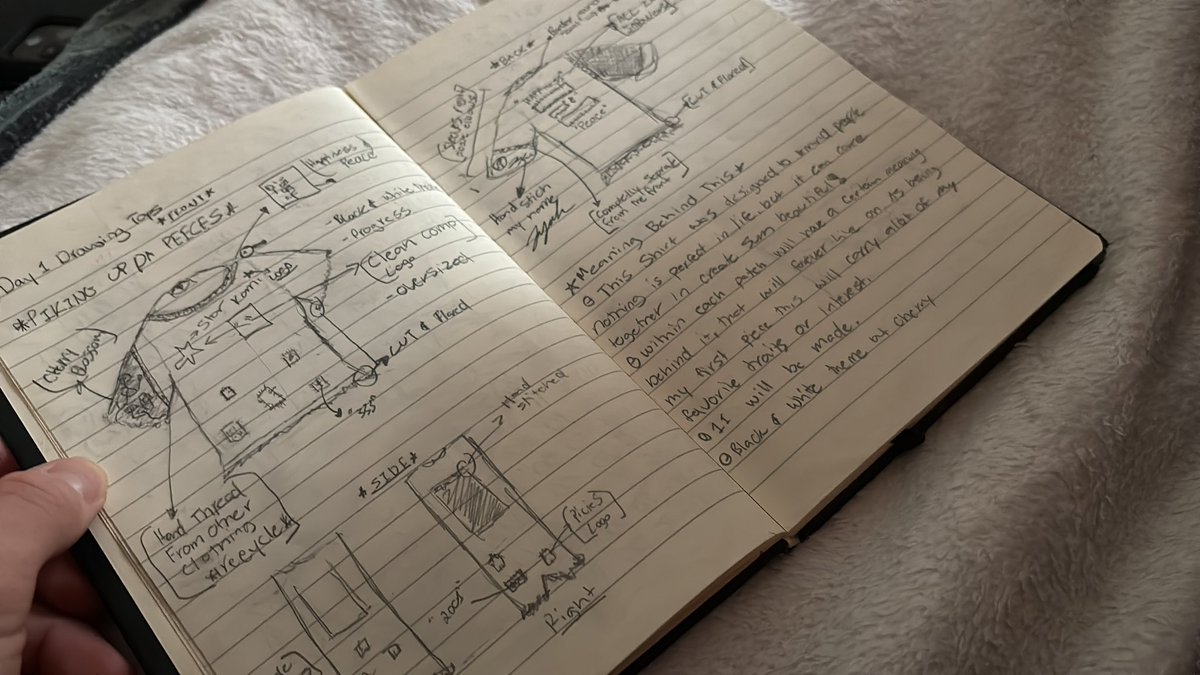 Day 1 Drawing Tops
*FRONT*
*PIKING UP DA PEICES*
Happiness &
Peace
- Black & White
- Progress
Clean comp
Logo
- oversized
Cherry
Blossom
Star
Logo
CUT & Flared
Hand Thread
From other
clothing
*recycle*
*SIDE*
Hand
stitched
Picies
Logo
Right
*BACK*
CUT & Flared
"Peace"
Hand stich
my name
Completly Seperate
From the front
*Meaning Behind This*
This Shirt was designed to remind people
nothing is perfect in life, but it can come
together in create Sum beautiful
within each patch will have a certain meaning
behind it, that will forever live on its being
my first piece this will carry allot of my
favorite traits or Interest.
11 will be made.
Black & white theme w/ cherry